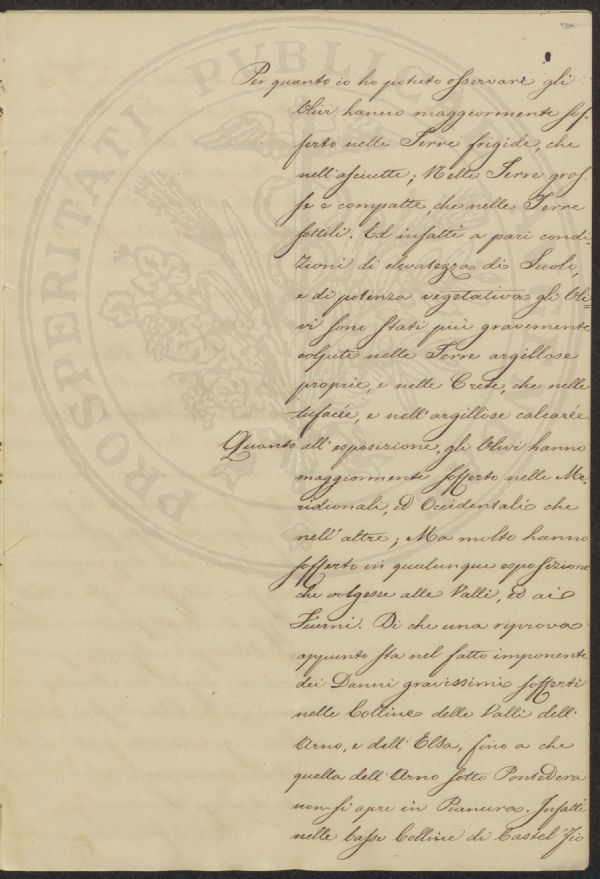 Per quanto io ho potuto osservare gli
Olivi hanno maggiormente sof-
ferto nelle Terre frigide, che
nell'asciutte; Nelle Terre gros-
se e compatte, che nelle Terre
sottili. Ed infatti a pari condi-
zioni di elevatezza di Suoli,
e di potenza vegetativa gli Oli-
vi sono stati più gravemente
colpiti nelle Terre argillose
proprie, e nelle Crete, che nelle
tufacée, e nell'argillose calcarée
Quanto all'esposizione, gli Olivi hanno
maggiormente sofferto nelle Me-
ridionali, ed Occidentali che
nell'altre; Ma molto hanno
sofferto in qualunque esposizione
che volgesse alle Valli, ed ai
Fiumi. Di che una riprova
appunto sta nel fatto imponente
dei Danni gravissimi sofferti
nelle Colline delle Valli dell'
Arno, e dell'Elsa, fino a che
quella dell'Arno sotto Pontedera
non si apre in Pianura. Infatti
nelle basse Colline di Castel Fio
PROSPERITATI PVBLICAE